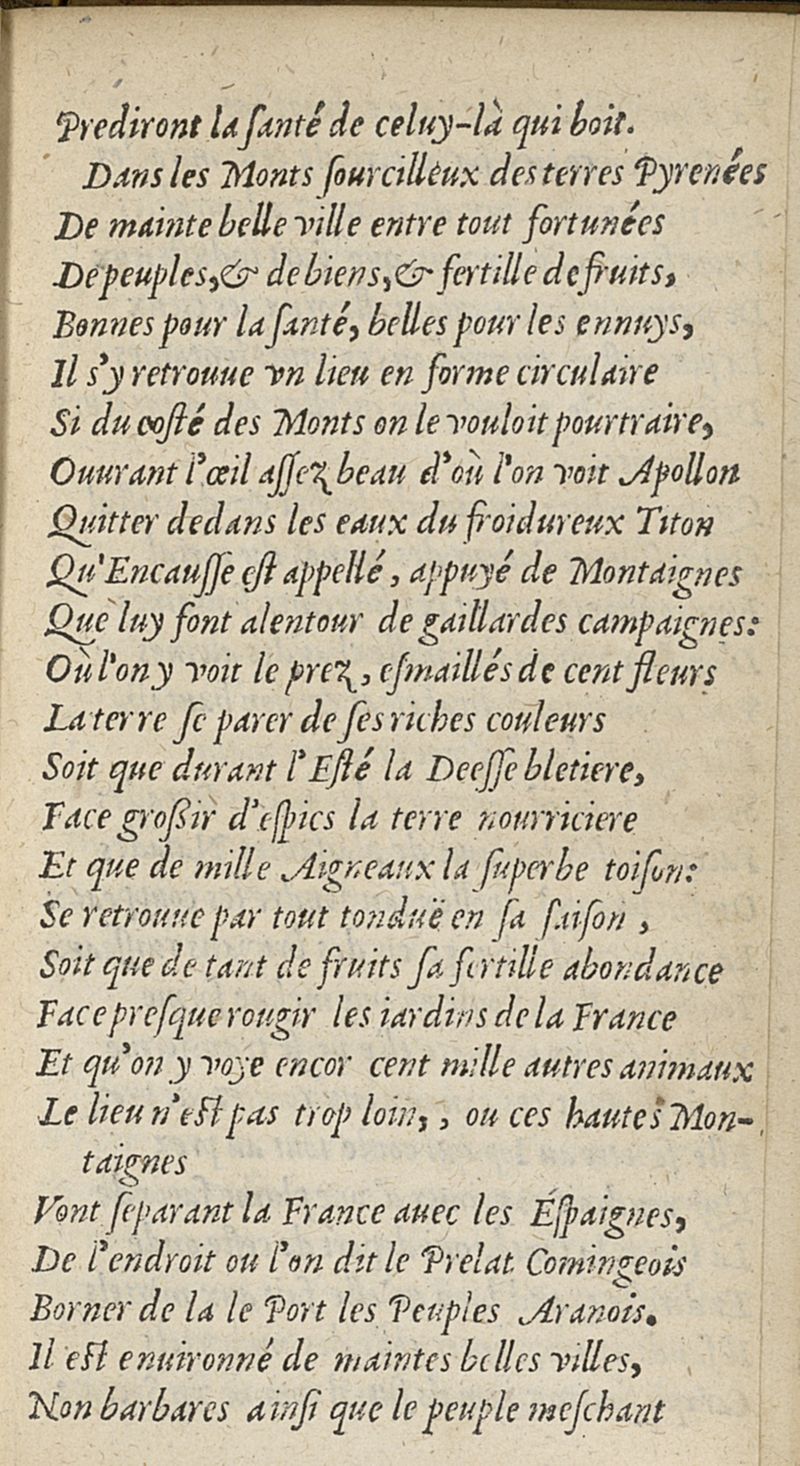 Prediront la ſanté de celuy-là qui boit.
Dans les Monts ſourcilleux des terres Pyrenées
De mainte belle ville entre tout fortunées
De peuples, & de biens, & fertille de fruits,
Bonnes pour la ſanté, belles pour les ennuys,
Il s'y retrouue vn lieu en forme circulaire
Si du coſté des Monts on le vouloit pourtraire,
Ouurant l'œil aſſez beau d'où l'on voit Apollon
Quitter dedans les eaux du froidureux Titon
Qu'Encauſſe eſt appellé, appuyé de Montaignes
Que luy font alentour de gaillardes campaignes:
Où l'on y voit le prez, eſmaillés de cent fleurs
La terre ſe parer de ſes riches couleurs
Soit que durant l'Eſté la Deeſſe bletiere,
Face groſſir d'eſpics la terre nourriciere
Et que de mille Aigneaux la ſuperbe toiſon:
Se retrouue par tout tonduë en ſa ſaiſon,
Soit que de tant de fruits ſa fertille abondance
Face preſque rougir les iardins de la France
Et qu'on y voye encor cent mille autres animaux
Le lieu n'eſt pas trop loin, , ou ces hautes Mon-
taignes
Vont ſeparant la France auec les Éſpaignes,
De l'endroit ou l'on dit le Prelat Comingeois
Borner de la le Port les Peuples Aranois.
Il eſt enuironné de maintes belles villes,
Non barbares ainſi que le peuple meſchant